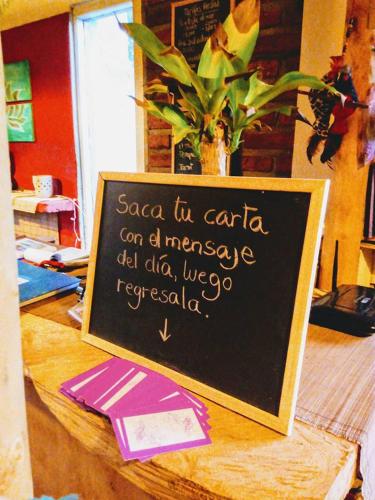 Saca tu carta
con el mensaje
del día, luego
regresala.